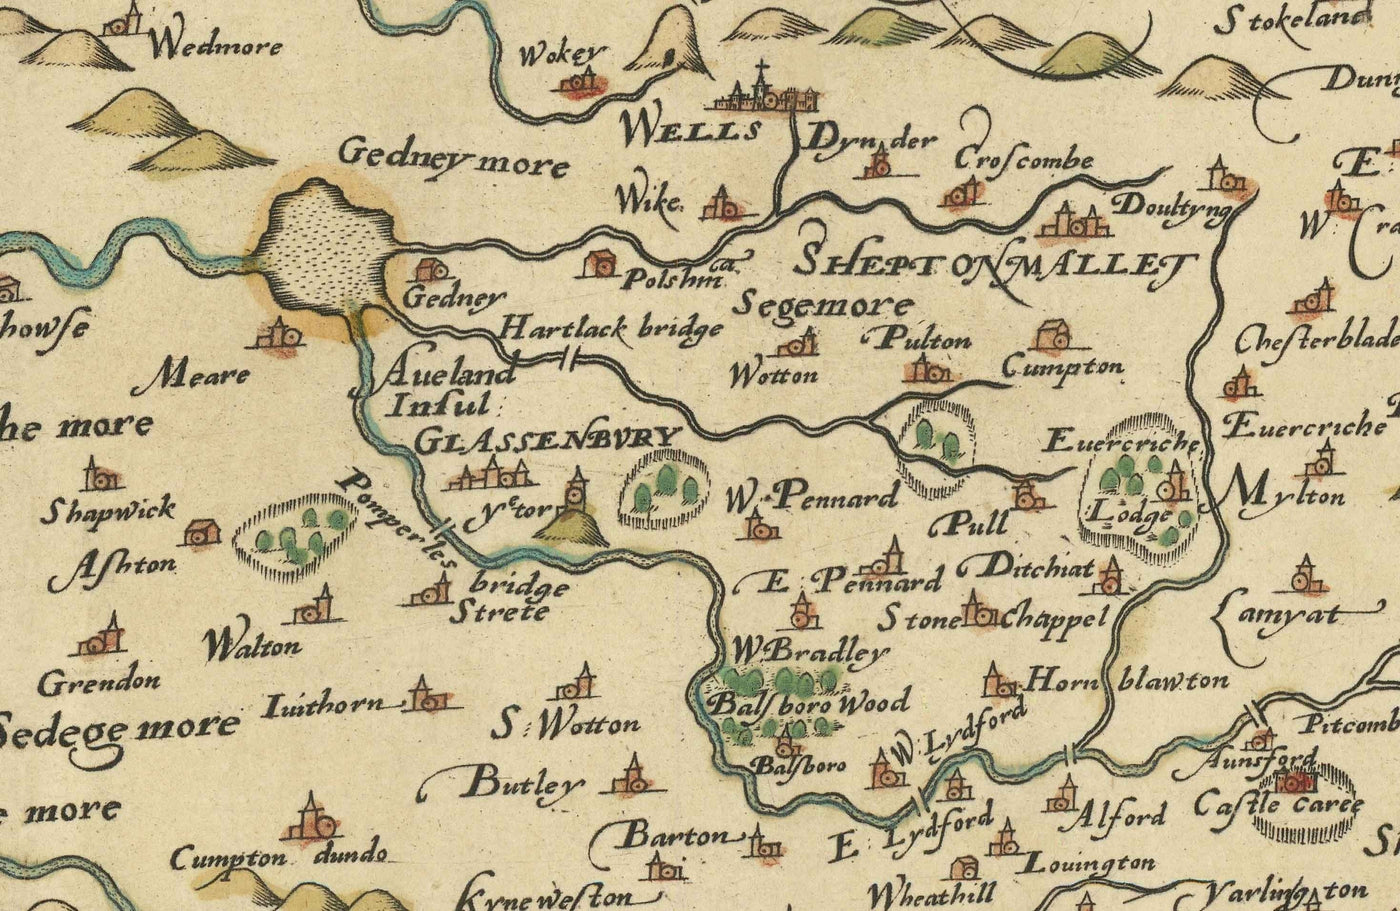 Stokeland
Wedmore
Wokey
WELLS
Dynder
Gedney more
Croſcombe
Wike
Doultyng
E.
W.
Polshmᵃ
SHEPTON MALLET
Gedney
howſe
Segemore
Hartlack bridge
Pulton
Cheſterblade
Meare
Aueland
Inſul:
Wotton
Cumpton
he more
GLASSENBVRY
Euercriche
Euercriche
Shapwick
Pomperles
bridge
yᵉ tor
W. Pennard
Pull
Lodge
Mylton
Aſhton
E. Pennard
Ditchiat
Strete
Stone
Chappel
Lamyat
Walton
W. Bradley
Grendon
Hornblawton
Iuithorn
Balſboro Wood
Sedege more
S. Wotton
W. Lydford
Pitcomb
Balſboro
Aunsford
Butley
Caſtle Caree
e more
E. Lydford
Alford
Barton
Cumpton dundo
Louington
Wheathill
Yarlington
Kyneweſton